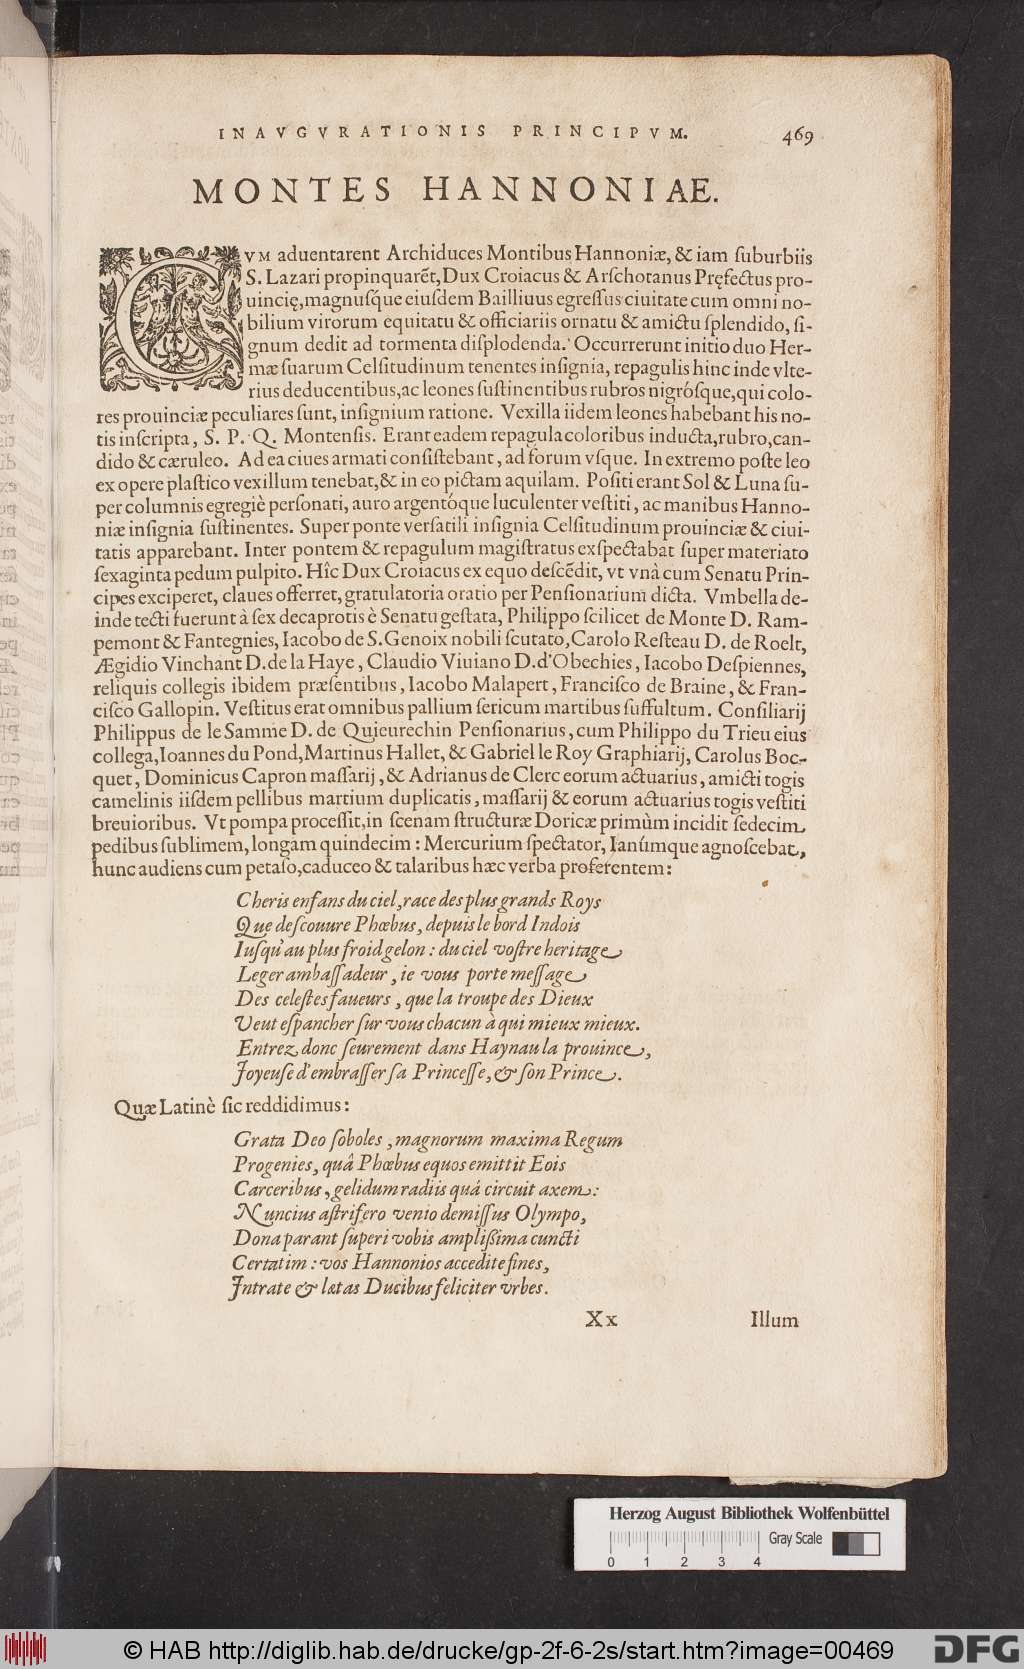 INAVGVRATIONIS PRINCIPVM. 469
MONTES HANNONIAE.
CVM aduentarent Archiduces Montibus Hannoniæ, & iam ſuburbiis
S. Lazari propinquarẽt, Dux Croiacus & Arſchotanus Pręfectus pro-
uincię, magnuſque eiuſdem Bailliuus egreſſus ciuitate cum omni no-
bilium virorum equitatu & officiariis ornatu & amictu ſplendido, ſi-
gnum dedit ad tormenta diſplodenda. Occurrerunt initio duo Her-
mæ ſuarum Celſitudinum tenentes inſignia, repagulis hinc inde vlte-
rius deducentibus, ac leones ſuſtinentibus rubros nigróſque, qui colo-
res prouinciæ peculiares ſunt, inſignium ratione. Vexilla iidem leones habebant his no-
tis inſcripta, S. P. Q. Montenſis. Erant eadem repagula coloribus inducta, rubro, can-
dido & cæruleo. Ad ea ciues armati conſiſtebant, ad forum vſque. In extremo poſte leo
ex opere plaſtico vexillum tenebat, & in eo pictam aquilam. Poſiti erant Sol & Luna ſu-
per columnis egregiè perſonati, auro argentóque luculenter veſtiti, ac manibus Hanno-
niæ inſignia ſuſtinentes. Super ponte verſatili inſignia Celſitudinum prouinciæ & ciui-
tatis apparebant. Inter pontem & repagulum magiſtratus exſpectabat ſuper materiato
ſexaginta pedum pulpito. Hîc Dux Croiacus ex equo deſcẽdit, vt vnà cum Senatu Prin-
cipes exciperet, claues offerret, gratulatoria oratio per Penſionarium dicta. Vmbella de-
inde tecti fuerunt à ſex decaprotis è Senatu geſtata, Philippo ſcilicet de Monte D. Ram-
pemont & Fantegnies, Iacobo de S. Genoix nobili ſcutato, Carolo Reſteau D. de Roelt,
Ægidio Vinchant D. de la Haye, Claudio Viuiano D. d'Obechies, Iacobo Deſpiennes,
reliquis collegis ibidem præſentibus, Iacobo Malapert, Franciſco de Braine, & Fran-
ciſco Gallopin. Veſtitus erat omnibus pallium ſericum martibus ſuffultum. Conſiliarij
Philippus de le Samme D. de Quieurechin Penſionarius, cum Philippo du Trieu eius
collega, Ioannes du Pond, Martinus Hallet, & Gabriel le Roy Graphiarij, Carolus Boc-
quet, Dominicus Capron maſſarij, & Adrianus de Clerc eorum actuarius, amicti togis
camelinis iiſdem pellibus martium duplicatis, maſſarij & eorum actuarius togis veſtiti
breuioribus. Vt pompa proceſſit, in ſcenam ſtructuræ Doricæ primùm incidit ſedecim
pedibus ſublimem, longam quindecim: Mercurium ſpectator, Ianúmque agnoſcebat,
hunc audiens cum petaſo, caduceo & talaribus hæc verba proferentem:
Cheris enfans du ciel, race des plus grands Roys
Que deſcouure Phœbus, depuis le bord Indois
Iuſqu'au plus froid gelon: du ciel voſtre heritage
Leger ambaſſadeur, ie vous porte meſſage
Des celeſtes faueurs, que la troupe des Dieux
Veut eſpancher ſur vous chacun à qui mieux mieux.
Entrez donc ſeurement dans Haynau la prouince,
Joyeuſe d'embraſſer ſa Princeſſe, & ſon Prince.
Quæ Latinè ſic reddidimus:
Grata Deo ſoboles, magnorum maxima Regum
Progenies, quâ Phœbus equos emittit Eois
Carceribus, gelidum radiis quá circuit axem:
Nuncius aſtrifero venio demiſſus Olympo,
Dona parant ſuperi vobis ampliſsima cuncti
Certatim: vos Hannonios accedite fines,
Intrate & lætas Ducibus feliciter vrbes.
Xx Illum
Herzog August Bibliothek Wolfenbüttel
Gray Scale
0 1 2 3 4
© HAB http://diglib.hab.de/drucke/gp-2f-6-2s/start.htm?image=00469 DFG